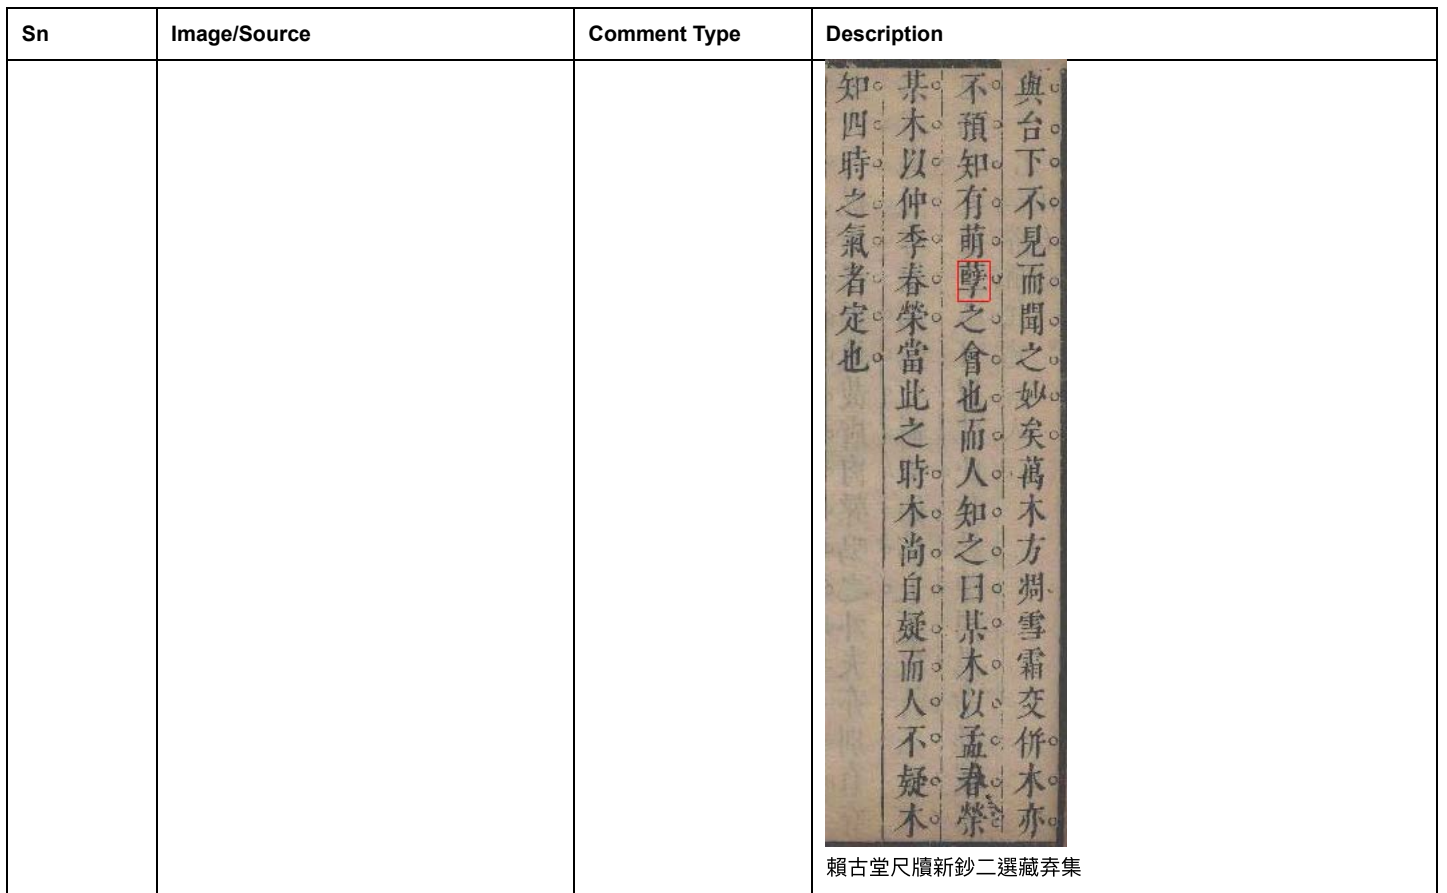 Sn
Image/Source
Comment Type
Description
與台下不見而聞之妙矣萬木方凋雪霜交併木亦
不預知有萌孽之會也而人知之曰某木以孟春榮
某木以仲季春榮當此之時木尚自疑而人不疑木
知四時之氣者定也
賴古堂尺牘新鈔二選藏弆集